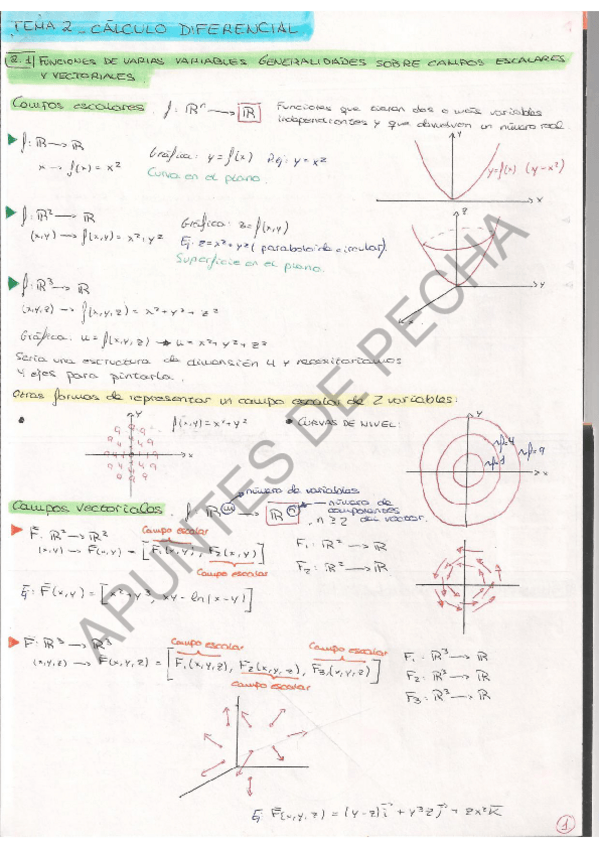 TEMA 2 _ CÁLCULO DIFERENCIAL
2.1 FUNCIONES DE VARIAS VARIABLES GENERALIDADES SOBRE CAMPOS ESCALARES
Y VECTORIALES
Campos escalares. f: ℝⁿ → ℝ Funciones que tienen dos o más variables
independientes y que devuelven un número real.
f: ℝ → ℝ
x → f(x) = x² Gráfica: y = f(x) P.Ej: y = x²
Curva en el plano.
y=f(x) (y=x²)
Y
X
f: ℝ² → ℝ
(x,y) → f(x,y) = x²+y² Gráfica: z=f(x,y)
Ej: z=x²+y² (paraboloide circular).
Superficie en el plano.
Z
Y
X
f: ℝ³ → ℝ
(x,y,z) → f(x,y,z) = x²+y²+z²
Gráfica: u=f(x,y,z) → u=x²+y²+z²
Sería una estructura de dimensión 4 y necesitaríamos
4 ejes para pintarla.
Otras formas de representar un campo escalar de 2 variables:
f(x,y)=x²+y² • CURVAS DE NIVEL:
Y
X
Y
X
Campos vectoriales. f: ℝᵐ → ℝⁿ, n ≥ 2
número de variables
número de componentes del vector.
F: ℝ² → ℝ²
(x,y) → F(x,y) = [F₁(x,y), F₂(x,y)]
Campo escalar
Campo escalar
F₁: ℝ² → ℝ
F₂: ℝ² → ℝ
Ej: F(x,y) = [x²+y³, xy - ln|x-y|]
F: ℝ³ → ℝ³
(x,y,z) → F(x,y,z) = [F₁(x,y,z), F₂(x,y,z), F₃(x,y,z)]
Campo escalar
Campo escalar
Campo escalar
F₁: ℝ³ → ℝ
F₂: ℝ³ → ℝ
F₃: ℝ³ → ℝ
Ej: F(x,y,z) = (y-z)i + y³zj + zx²k
1
APUNTES DE PECHA